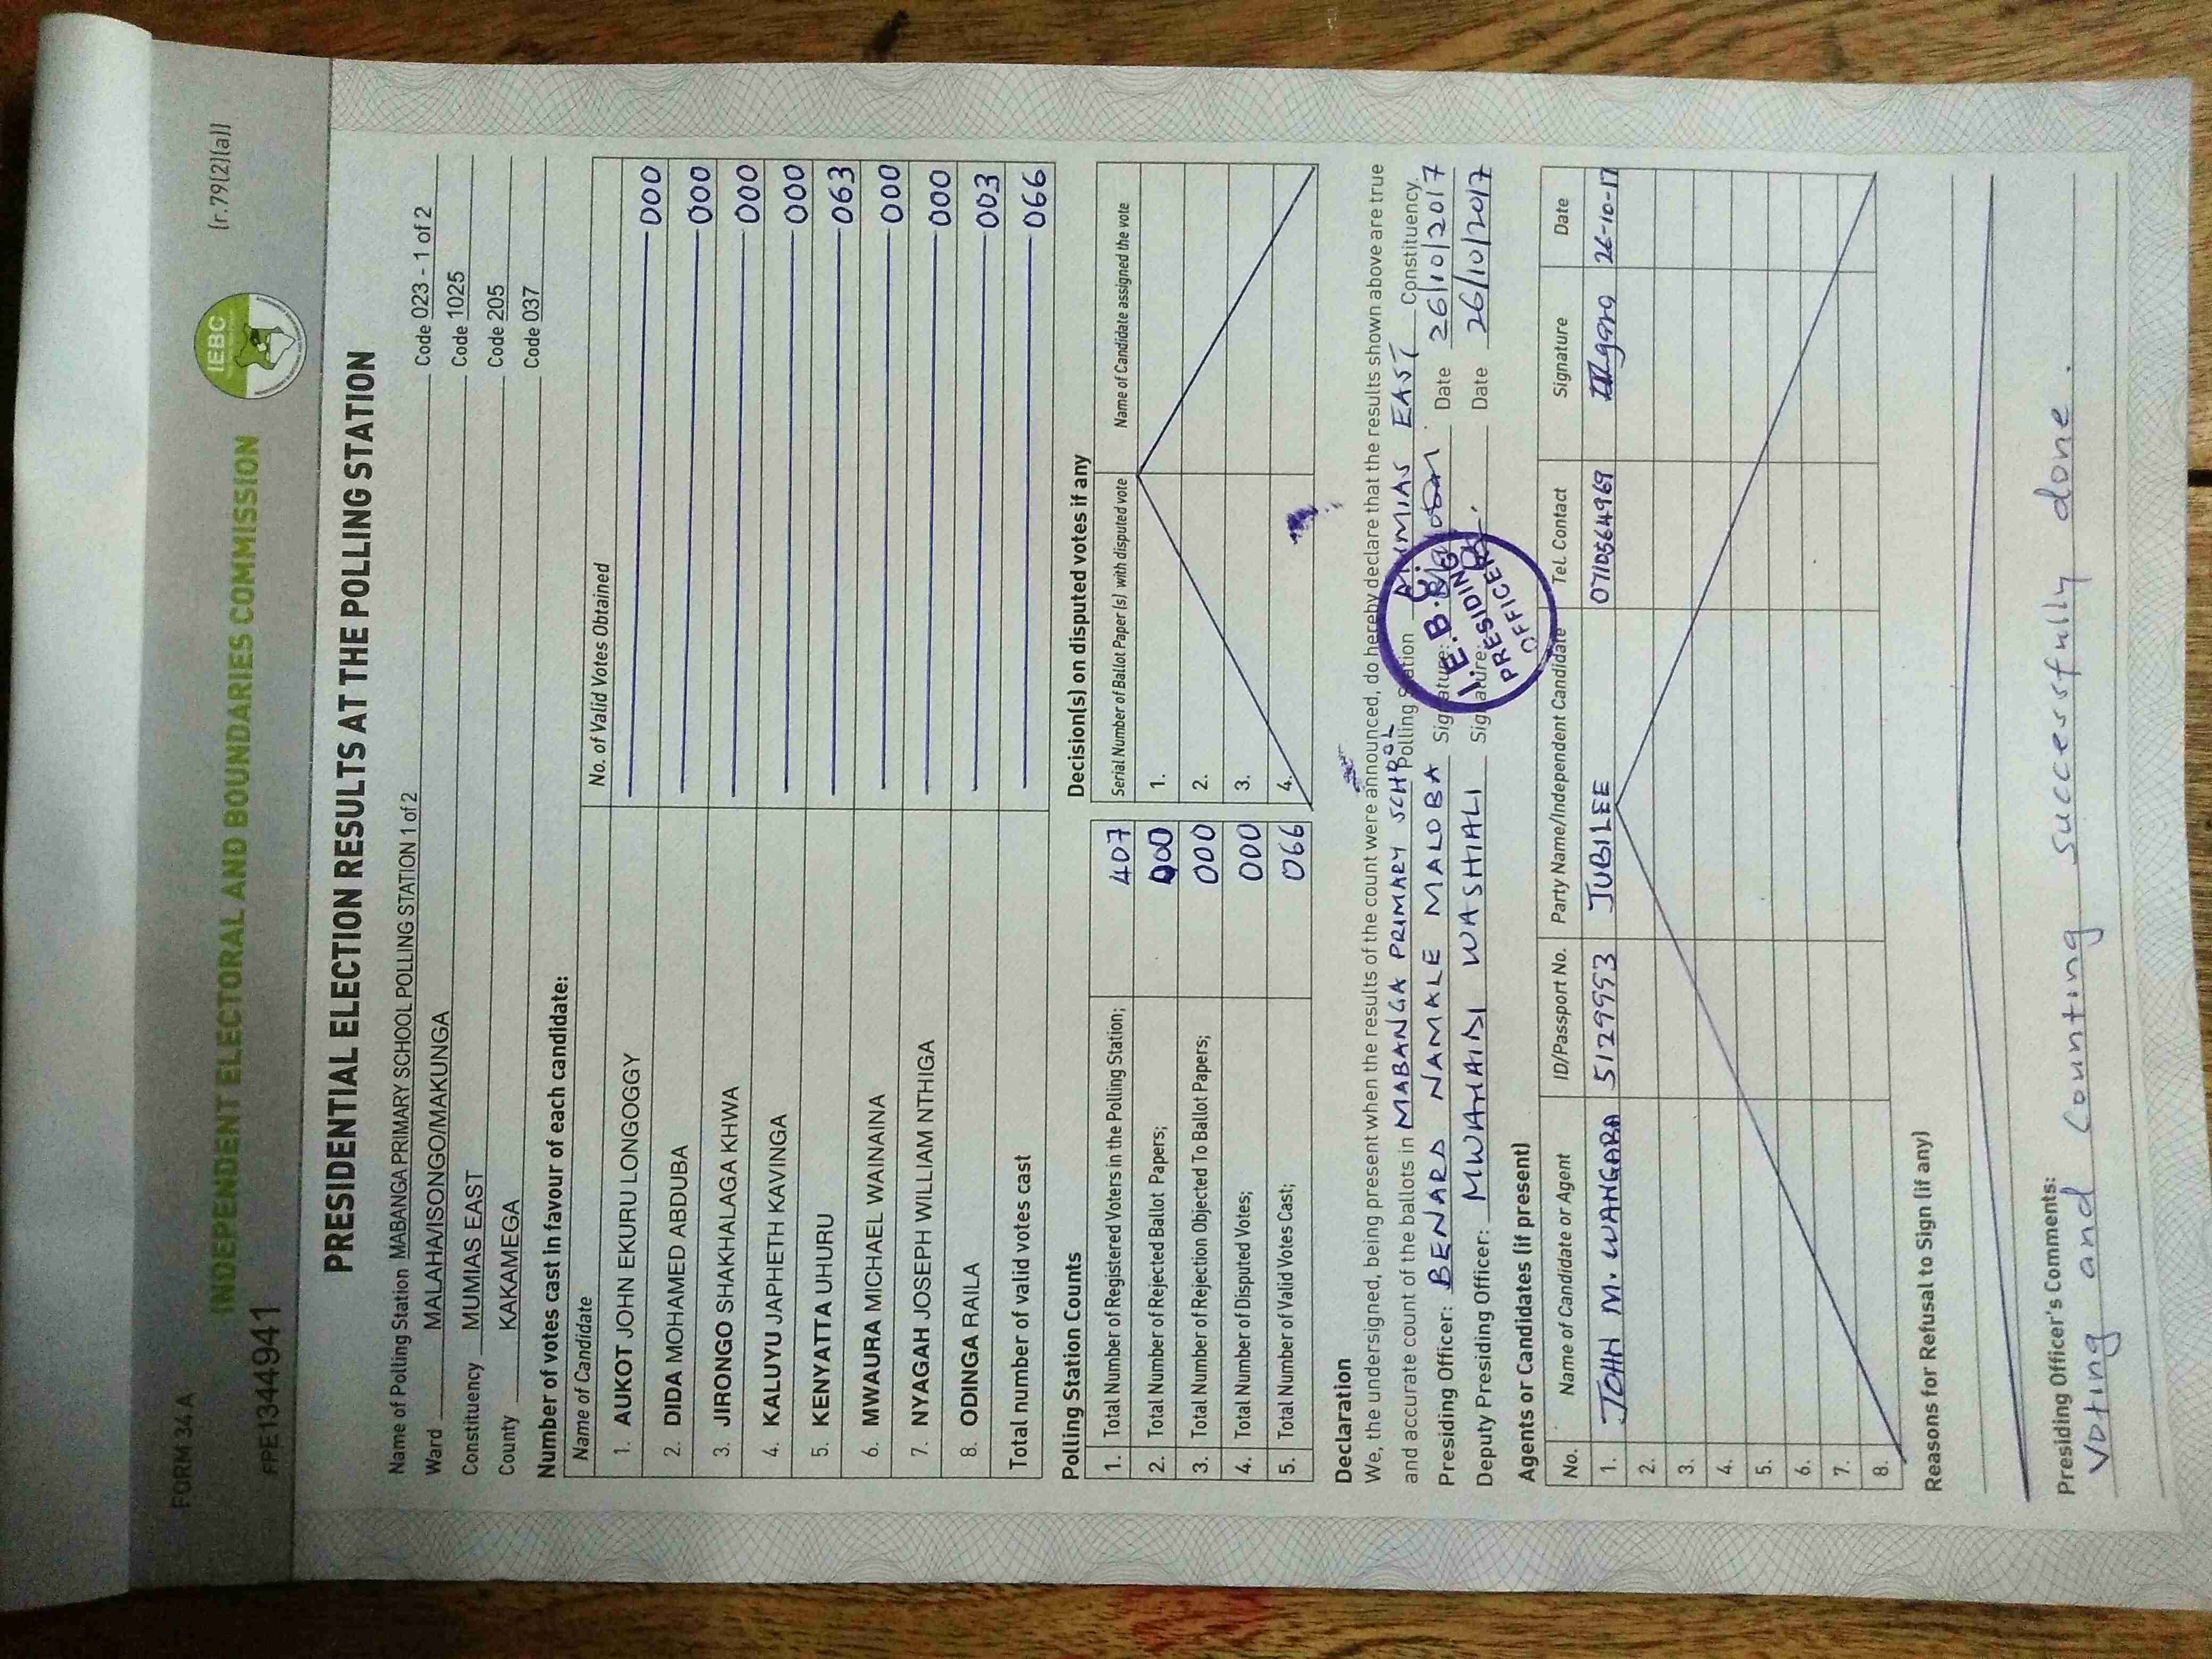 FORM 34 A
(r.79(2)(a))
FPE1344941
INDEPENDENT ELECTORAL AND BOUNDARIES COMMISSION
IEBC
PRESIDENTIAL ELECTION RESULTS AT THE POLLING STATION
Name of Polling Station MABANGA PRIMARY SCHOOL POLLING STATION 1 of 2 Code 023 - 1 of 2
Ward MALAHA/ISONGO/MAKUNGA Code 1025
Constituency MUMIAS EAST Code 205
County KAKAMEGA Code 037
Number of votes cast in favour of each candidate:
Name of Candidate No. of Valid Votes Obtained
1. AUKOT JOHN EKURU LONGOGGY 000
2. DIDA MOHAMED ABDUBA 000
3. JIRONGO SHAKHALAGA KHWA 000
4. KALUYU JAPHETH KAVINGA 000
5. KENYATTA UHURU 063
6. MWAURA MICHAEL WAINAINA 000
7. NYAGAH JOSEPH WILLIAM NTHIGA 000
8. ODINGA RAILA 003
Total number of valid votes cast 066
Polling Station Counts
1. Total Number of Registered Voters in the Polling Station; 407
2. Total Number of Rejected Ballot Papers; 000
3. Total Number of Rejection Objected To Ballot Papers; 000
4. Total Number of Disputed Votes; 000
5. Total Number of Valid Votes Cast; 066
Decision(s) on disputed votes if any
Serial Number of Ballot Paper(s) with disputed vote Name of Candidate assigned the vote
1.
2.
3.
4.
Declaration
We, the undersigned, being present when the results of the count were announced, do hereby declare that the results shown above are true
and accurate count of the ballots in MABANGA PRIMARY SCHOOL Polling Station MUMIAS EAST Constituency.
Presiding Officer: BENARD NAMALE MALOBA Signature: Date 26/10/2017
Deputy Presiding Officer: MWAHAIDI WASHIALI Signature: Date 26/10/2017
I.E.B.C.
PRESIDING
OFFICER
Agents or Candidates (if present)
No. Name of Candidate or Agent ID/Passport No. Party Name/Independent Candidate Tel. Contact Signature Date
1. JOHN M. WANGARA 5129953 JUBILEE 0710564969 26-10-17
2.
3.
4.
5.
6.
7.
8.
Reasons for Refusal to Sign (if any)
Presiding Officer's Comments:
Voting and counting successfully done.